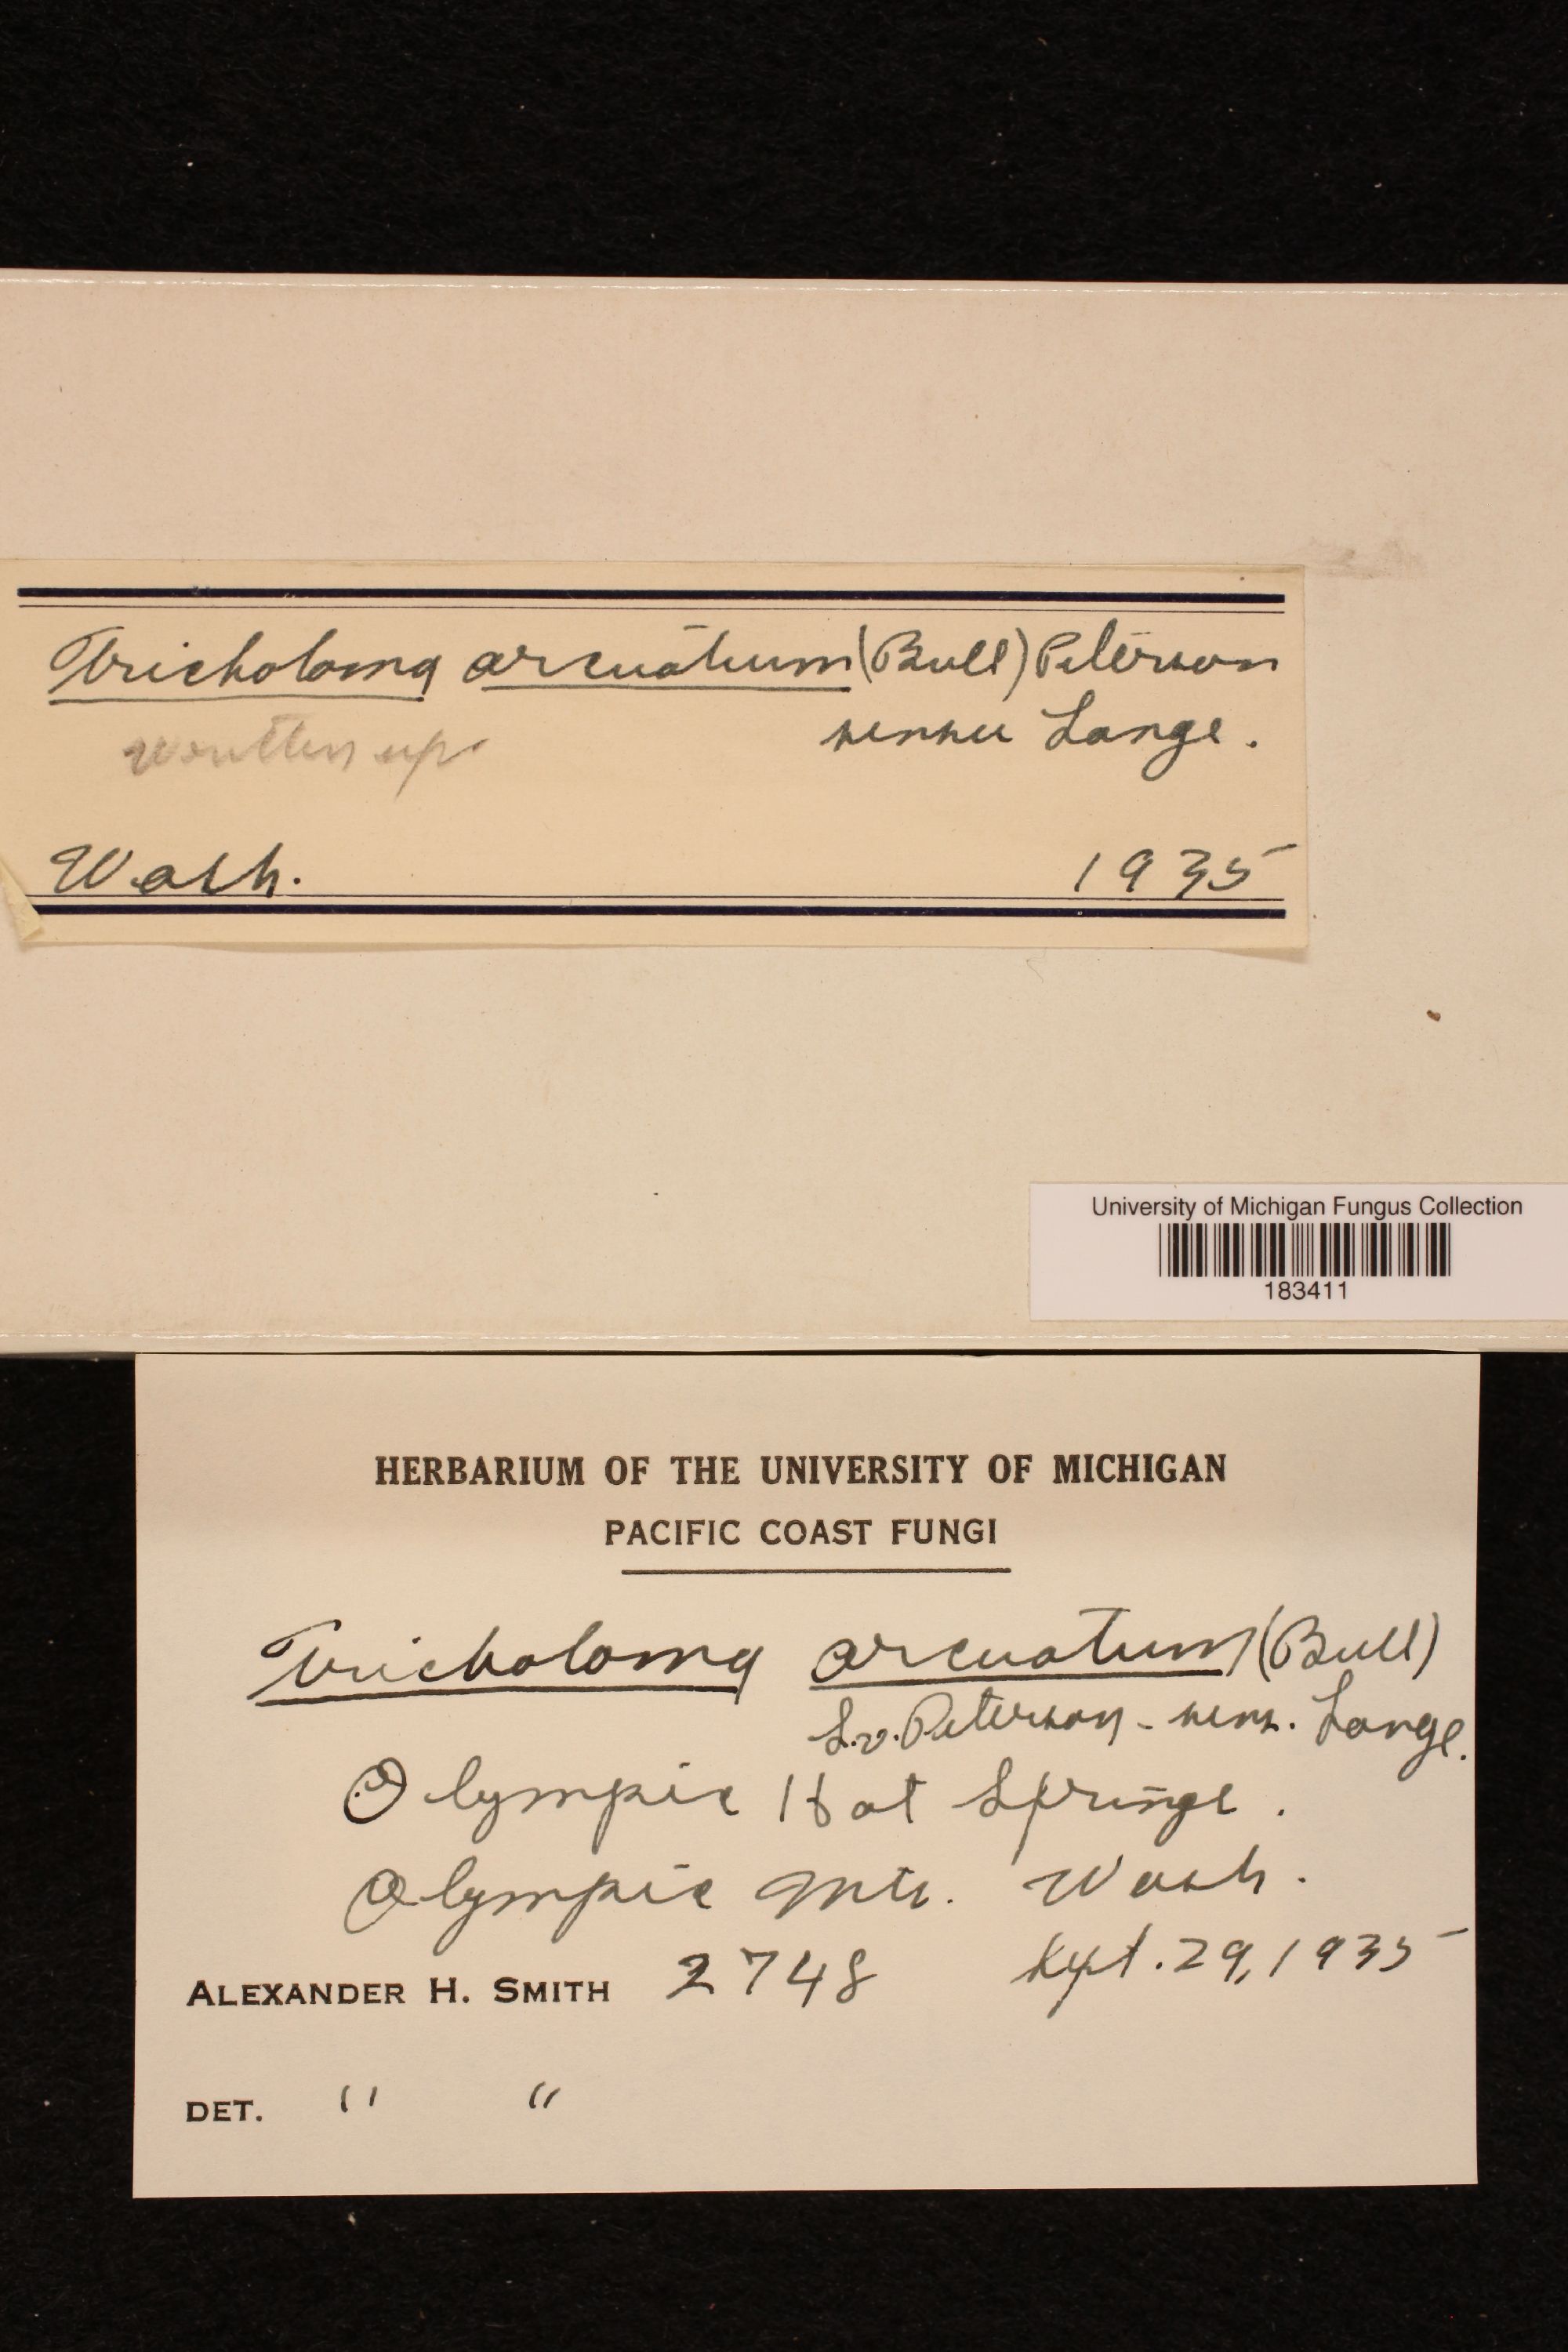 Tricholoma arcuatum (Bull) Peterson
written up. sensu Lange.
Wash. 1935
University of Michigan Fungus Collection
183411
HERBARIUM OF THE UNIVERSITY OF MICHIGAN
PACIFIC COAST FUNGI
Tricholoma arcuatum (Bull)
S.v. Peterson - sens. Lange.
Olympic Hot Springs.
Olympic Mts. Wash.
ALEXANDER H. SMITH 2748 Sept. 29, 1935
DET. " "